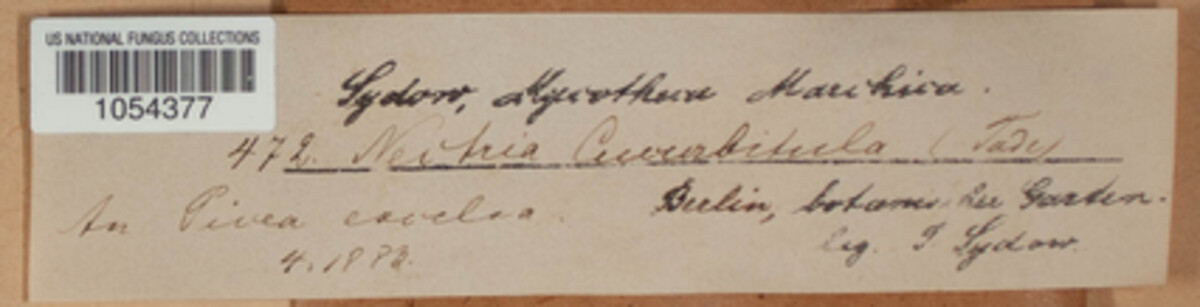 US NATIONAL FUNGUS COLLECTIONS
1054377
Sydow, Mycotheca Marchica.
472. Nectria Cucurbitula (Tode)
An Picea excelsa. Berlin, botanischer Garten.
4. 1883. leg. P. Sydow.